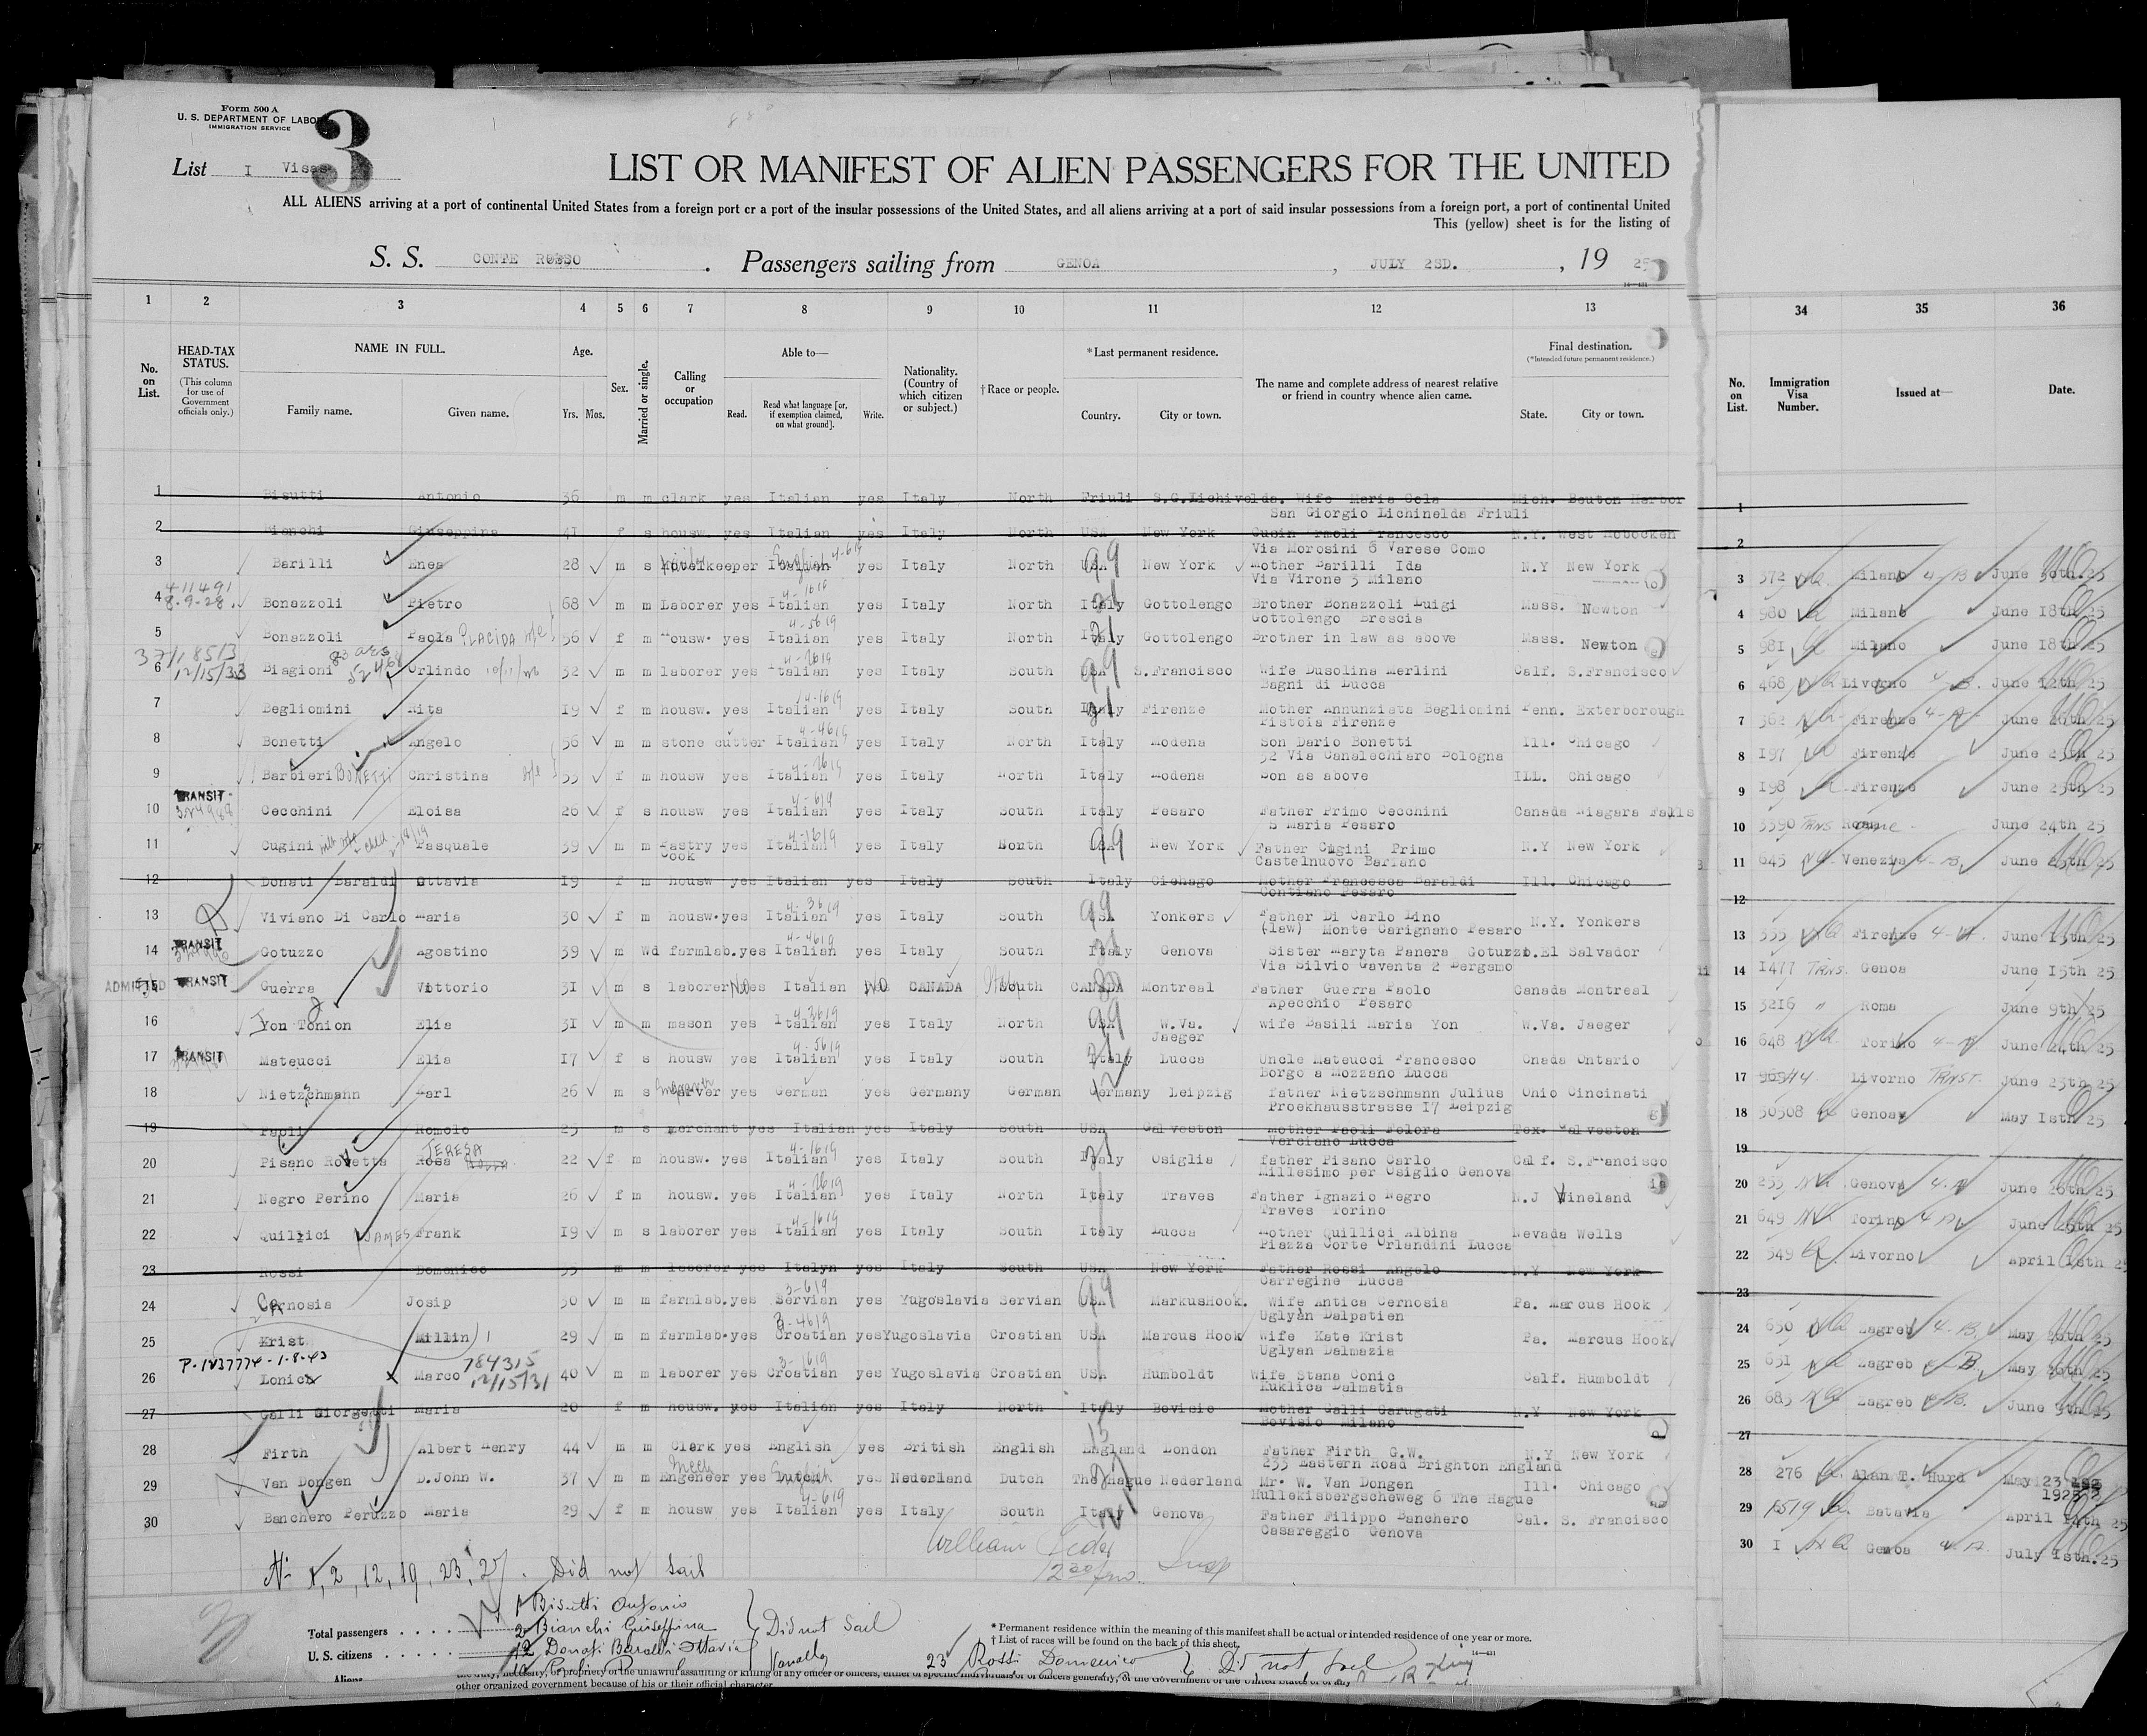 Form 500 A
U. S. DEPARTMENT OF LABOR
IMMIGRATION SERVICE
3
List I Visas
LIST OR MANIFEST OF ALIEN PASSENGERS FOR THE UNITED
ALL ALIENS arriving at a port of continental United States from a foreign port or a port of the insular possessions of the United States, and all aliens arriving at a port of said insular possessions from a foreign port, a port of continental United
This (yellow) sheet is for the listing of
S. S. CONTE ROSSO . Passengers sailing from GENOA , JULY 2SD. , 19 25
1 2 3 4 5 6 7 8 9 10 11 12 13 34 35 36
No. on List. HEAD-TAX STATUS. (This column for use of Government officials only.) NAME IN FULL. Family name. Given name. Age. Yrs. Mos. Sex. Married or single. Calling or occupation Able to— Read. Read what language [or, if exemption claimed, on what ground]. Write. Nationality. (Country of which citizen or subject.) †Race or people. *Last permanent residence. Country. City or town. The name and complete address of nearest relative or friend in country whence alien came. Final destination. (*Intended future permanent residence.) State. City or town. No. on List. Immigration Visa Number. Issued at— Date.
1 Bisutti Antonio 36 m m clark yes Italian yes Italy North Friuli S.G.Lichivelda. Wife Maria Cola Mich. Bouton Harbor 1
San Giorgio Lichinelda Friuli
2 Bianchi Giuseppina 41 f s housw. yes Italian yes Italy North USA New York Cusin Francesco N.Y. West Hobocken 2
Via Morosini 6 Varese Como
3 Barilli Enea 28 m s Hotelkeeper Italian English 4-619 yes Italy North USA 99 New York Mother Barilli Ida N.Y New York 3 372 Milano 4-B June 30th.25
Via Virone 3 Milano
411491
8.9.28.
4 Bonazzoli Pietro 68 m m Laborer yes Italian 4-1619 yes Italy North Italy 21 Gottolengo Brother Bonazzoli Luigi Mass. Newton 4 980 Milano June 18th 25
Gottolengo Brescia
5 Bonazzoli Paola PLACIDA 56 f m housw. yes Italian 4-5619 yes Italy North Italy 21 Gottolengo Brother in law as above Mass. Newton 5 981 Milano June 18th 25
37/18513
12/15/33
6 Biagioni Orlindo 32 m m laborer yes Italian 4-2619 yes Italy South USA 99 S.Francisco Wife Dusolina Merlini Calf. S.Francisco 6 468 Livorno 4-B. June 12th 25
Bagni di Lucca
7 Begliomini Rita 19 f m housw. yes Italian 4-1619 yes Italy South Italy 21 Firenze Mother Annunziata Begliomini Penn. Exterborough 7 362 Firenze 4-A June 26th 25
Pistoia Firenze
8 Bonetti Angelo 56 m m stone cutter Italian 4-4619 yes Italy North Italy Modena Son Dario Bonetti Ill. Chicago 8 197 Firenze June 25th 25
32 Via Canalechiaro Bologna
9 Barbieri BONETTI Christina 55 f m housw yes Italian yes Italy North Italy Modena Son as above ILL. Chicago 9 198 Firenze June 25th 25
TRANSIT
10 Cecchini Eloisa 26 f s housw yes Italian 4-619 yes Italy South Italy Pesaro Father Primo Cecchini Canada Niagara Falls 10 3390 TRNS Roma June 24th 25
S Maria Pesaro
11 Cugini Pasquale 39 m m Pastry Cook yes Italian 4-1619 yes Italy North USA 99 New York Father Cugini Primo N.Y New York 11 645 Venezia 4-B June 25th 25
Castelnuovo Bariano
12 Donati Baraldi Ottavia 19 f m housw yes Italian yes Italy South Italy Cichago Mother Francesca Baraldi Ill. Chicago 12
Contiano Pesaro
13 Viviano Di Carlo Maria 30 f m housw. yes Italian 4-3619 yes Italy South USA 99 Yonkers Father Di Carlo Lino N.Y. Yonkers 13 335 Firenze 4-A. June 15th 25
(law) Monte Carignano Pesaro
TRANSIT
14 Gotuzzo Agostino 39 m Wd farmlab. yes Italian 4-4619 yes Italy South Italy 21 Genova Sister Maryta Panera Gotuzzo. El Salvador 14 1477 TRNS. Genoa June 15th 25
Via Silvio Gaventa 2 Bergamo
ADMITTED TRANSIT
15 Guerra Vittorio 31 m s laborer No yes Italian NO CANADA South CANADA Montreal Father Guerra Paolo Canada Montreal 15 3216 " Roma June 9th 25
Apecchio Pesaro
16 Yon Tonion Elia 31 m m mason yes Italian 4-3619 yes Italy North USA 99 W.Va. Jaeger wife Basili Maria Yon W.Va. Jaeger 16 648 Torino 4-B June 24th 25
TRANSIT
17 Mateucci Elia 17 f s housw yes Italian 4-5619 yes Italy South Italy 21 Lucca Uncle Mateucci Francesco Cnada Ontario 17 Livorno TRNST. June 23th 25
Borgo a Mozzano Lucca
18 Nietzschmann Karl 26 m s Engraver yes German yes Germany German Germany Leipzig father Nietzschmann Julius Ohio Cincinati 18 50508 Genoa May 18th 25
Proekhausstrasse 17 Leipzig
19 Paoli Romolo 25 m s merchant yes Italian yes Italy South USA Galveston Mother Paoli Felora Tex. Galveston 19
Verciano Lucca
20 Pisano Rovetta Rosa TERESA 22 f m housw. yes Italian 4-1619 yes Italy South Italy 21 Osiglia father Pisano Carlo Calf. S.Francisco 20 255 Genova 4-A June 26th 25
Millesimo per Osiglio Genova
21 Negro Perino Maria 26 f m housw. yes Italian 4-2619 yes Italy North Italy Traves Father Ignazio Negro N.J Wineland 21 649 Torino 4 A June 25th 25
Traves Torino
22 Quilici JAMES Frank 19 m s laborer yes Italian 4-1619 yes Italy South Italy Lucca Mother Quillici Albina Nevada Wells 22 349 Livorno April 18th 25
Piazza Corte Orlandini Lucca
23 Rossi Domenico 35 m m laborer yes Italyn yes Italy South USA New York Father Rossi Angelo N.Y New York 23
Carregine Lucca
24 Cernosia Josip 30 m m farmlab. yes Servian 3-619 yes Yugoslavia Servian USA 99 MarkusHook. Wife Antica Cernosia Pa. Marcus Hook 24 650 Zagreb 4-B. May 26th 25
Uglyan Dalpatien
25 Krist Millin 29 m m farmlab. yes Croatian 3-4619 yes Yugoslavia Croatian USA Marcus Hook Wife Kate Krist Pa. Marcus Hook 25 651 Zagreb B. May 26th 25
Uglyan Dalmazia
P-1237774-1-8-43
784315
12/15/31
26 Lonica Marco 40 m m laborer yes Croatian 3-1619 yes Yugoslavia Croatian USA Humboldt Wife Stana Conic Calf. Humboldt 26 683 Zagreb B. June 5th 25
Kuklica Dalmatia
27 Galli Giorgetti Maria 20 f m housw. yes Italian yes Italy North Italy Bovisio Mother Galli Carugati N.Y New York 27
Bovisio Milano
28 Firth Albert Henry 44 m m Clerk yes English yes British English England 15 London Father Firth G.W. N.Y New York 28 276 Alan T. Hurd May 23 1925
233 Eastern Road Brighton England
29 Van Dongen D.John W. 37 m m Mech Engeneer yes Dutch English yes Nederland Dutch The Hague Nederland Mr. W. Van Dongen Ill. Chicago 29 Batavia April 14th 25
Hullekisbergscheweg 6 The Hague
30 Banchero Peruzzo Maria 29 f m housw yes Italian 4-619 yes Italy South Italy 21 Genova Father Filippo Banchero Cal. S. Francisco 30 I Genoa July 1sth.25
Casareggio Genova
William
Insp
12 30 pm.
N. 1, 2, 12, 19, 23, 27. Did not sail
1 Bisutti Antonio
2 Bianchi Giuseppina
12 Donati Baraldi Ottavia
Did not Sail
23 Rossi Domenico Did not Sail
Total passengers . . . .
U. S. citizens . . . . .
Aliens
* Permanent residence within the meaning of this manifest shall be actual or intended residence of one year or more.
† List of races will be found on the back of this sheet.
the duty, necessity, or propriety of the unlawful assaulting or killing of any officer or officers, either of specific individuals or of officers generally, of the Government of the United States or of any
other organized government because of his or their official character